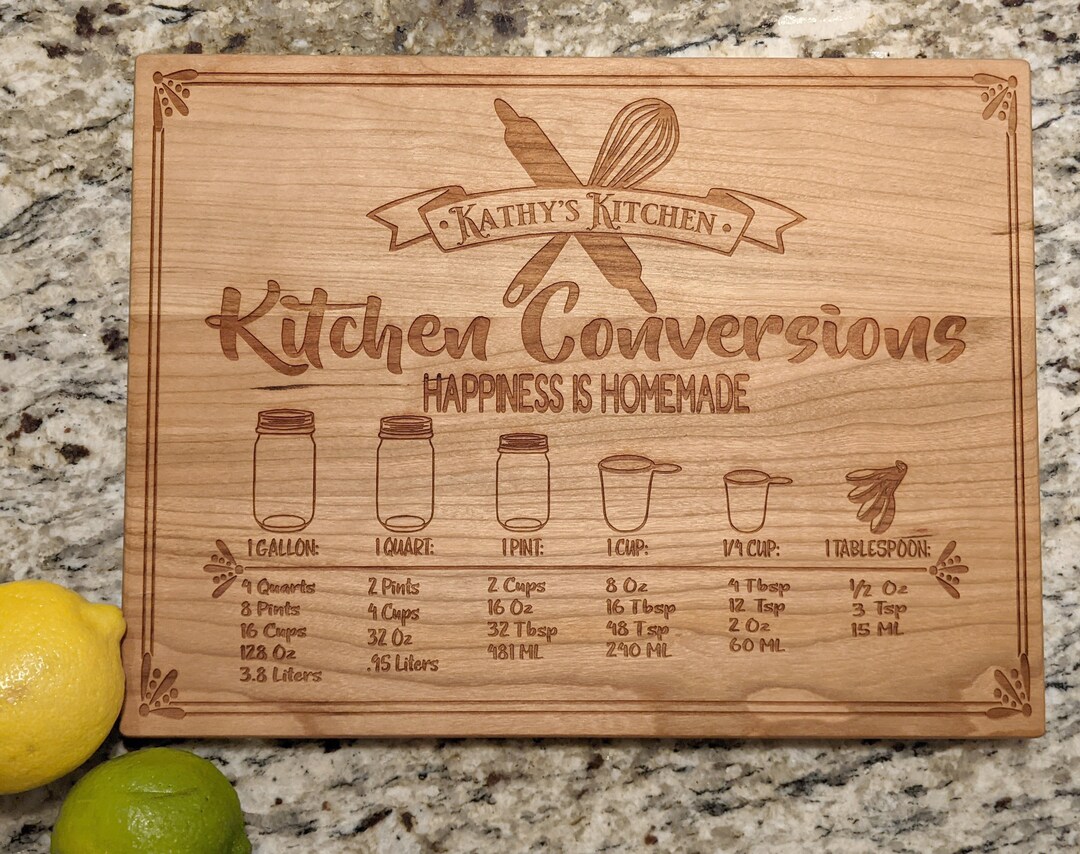 ·KATHY'S KITCHEN·
Kitchen Conversions
HAPPINESS IS HOMEMADE
1 GALLON: 1 QUART: 1 PINT: 1 CUP: 1/4 CUP: 1 TABLESPOON:
4 Quarts 2 Pints 2 Cups 8 Oz 4 Tbsp 1/2 Oz
8 Pints 4 Cups 16 Oz 16 Tbsp 12 Tsp 3 Tsp
16 Cups 32 Oz 32 Tbsp 48 Tsp 2 Oz 15 ML
128 Oz .95 Liters 481 ML 240 ML 60 ML
3.8 Liters